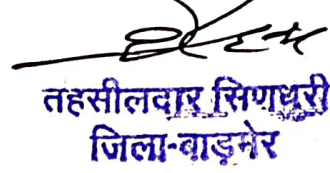 तहसीलदार सिणधरी
जिला-बाड़मेर